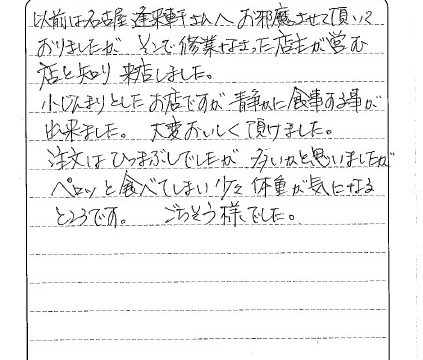 以前は名古屋蓬莱軒さんへお邪魔させて頂いて
おりましたが、そこで修業なさった店主が営む
店と知り来店しました。
小じんまりとしたお店ですが静かに食事する事が
出来ました。大変おいしく頂けました。
注文はひつまぶしでしたが多いかと思いましたが
ペロッと食べてしまい少々体重が気になる
ところです。ごちそう様でした。